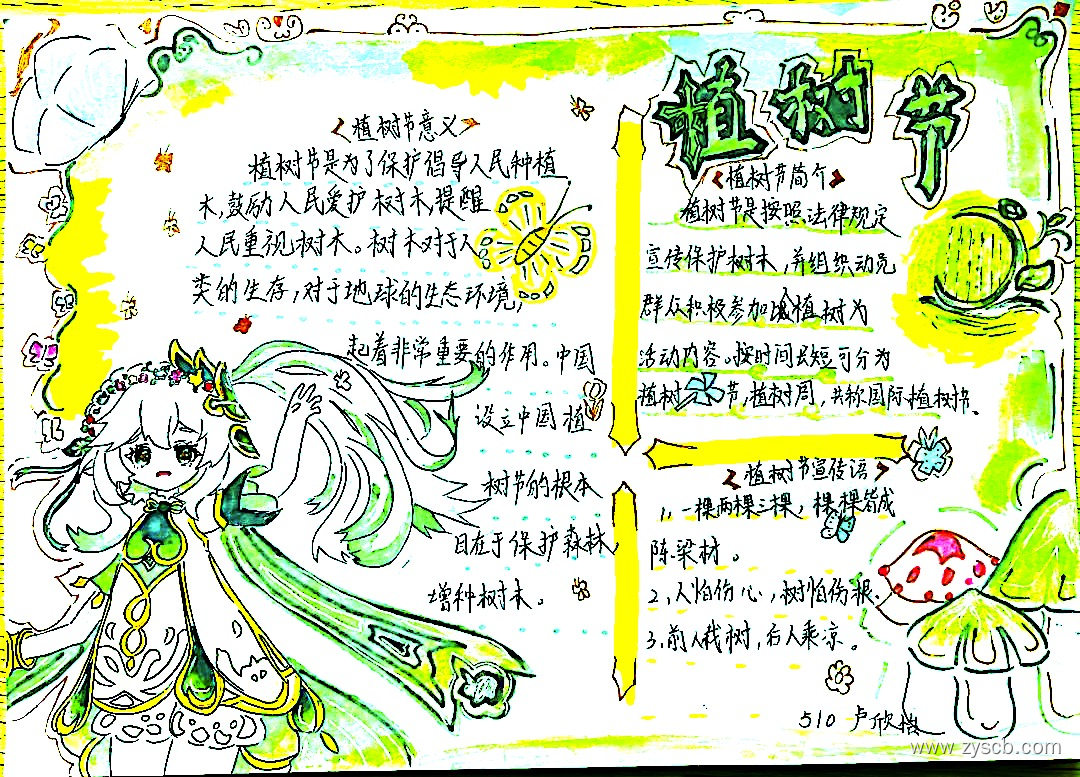 植树节
<植树节意义>
植树节是为了保护倡导人民种植
木,鼓励人民爱护树木,提醒
人民重视树木。树木对于人
类的生存,对于地球的生态环境,
起着非常重要的作用。中国
设立中国植
树节的根本
目在于保护森林
增种树木。
<植树节简介>
植树节是按照法律规定
宣传保护树木,并组织动员
群众积极参加以植树为
活动内容。按时间长短可分为
植树节,植树周,共称国际植树节。
<植树节宣传语>
1、一棵两棵三棵,棵棵皆成
陈梁材。
2、人怕伤心,树怕伤根.
3、前人栽树,后人乘凉。
510 卢欣
www.zyscb.com